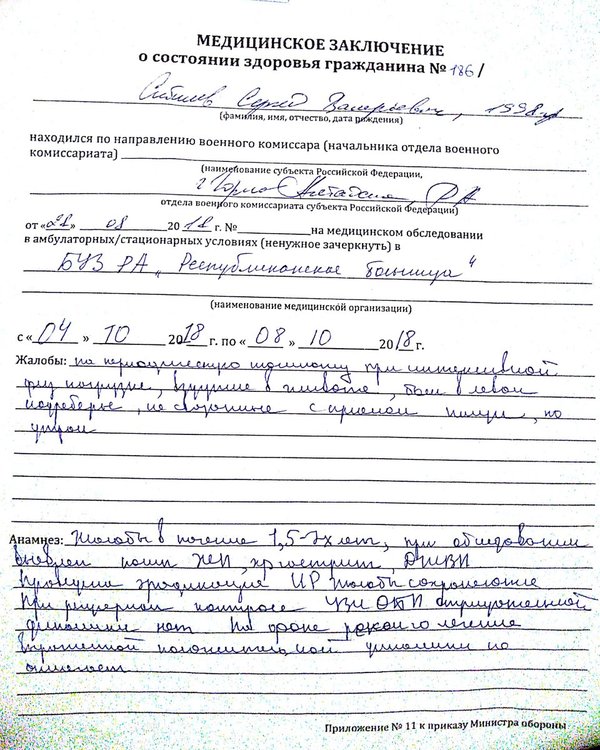 МЕДИЦИНСКОЕ ЗАКЛЮЧЕНИЕ
о состоянии здоровья гражданина № 186/
Сергей Валерьевич, 1998
(фамилия, имя, отчество, дата рождения)
находился по направлению военного комиссара (начальника отдела военного
комиссариата)
(наименование субъекта Российской Федерации,
г. РА
отдела военного комиссариата субъекта Российской Федерации)
от « » 08 2018 г. № на медицинском обследовании
в амбулаторных/стационарных условиях (ненужное зачеркнуть) в
БУЗ РА „Республиканская больница“
(наименование медицинской организации)
с « 04 » 10 2018 г. по « 08 » 10 2018 г.
Жалобы: на периодическую при интенсивной
физ нагрузке, вздутие в животе, боли в левом
подреберье, не связанные с приемом пищи, по
утрам
Анамнез: Жалобы в течение 1,5-2х лет, при обследовании
выявлен хр гастрит, ДЖВП
Проведена эрадикация HP жалобы сохраняются
При контроле УЗИ ОБП отрицательной
динамики нет На фоне лечения
положительной динамики не
отмечает
Приложение № 11 к приказу Министра обороны